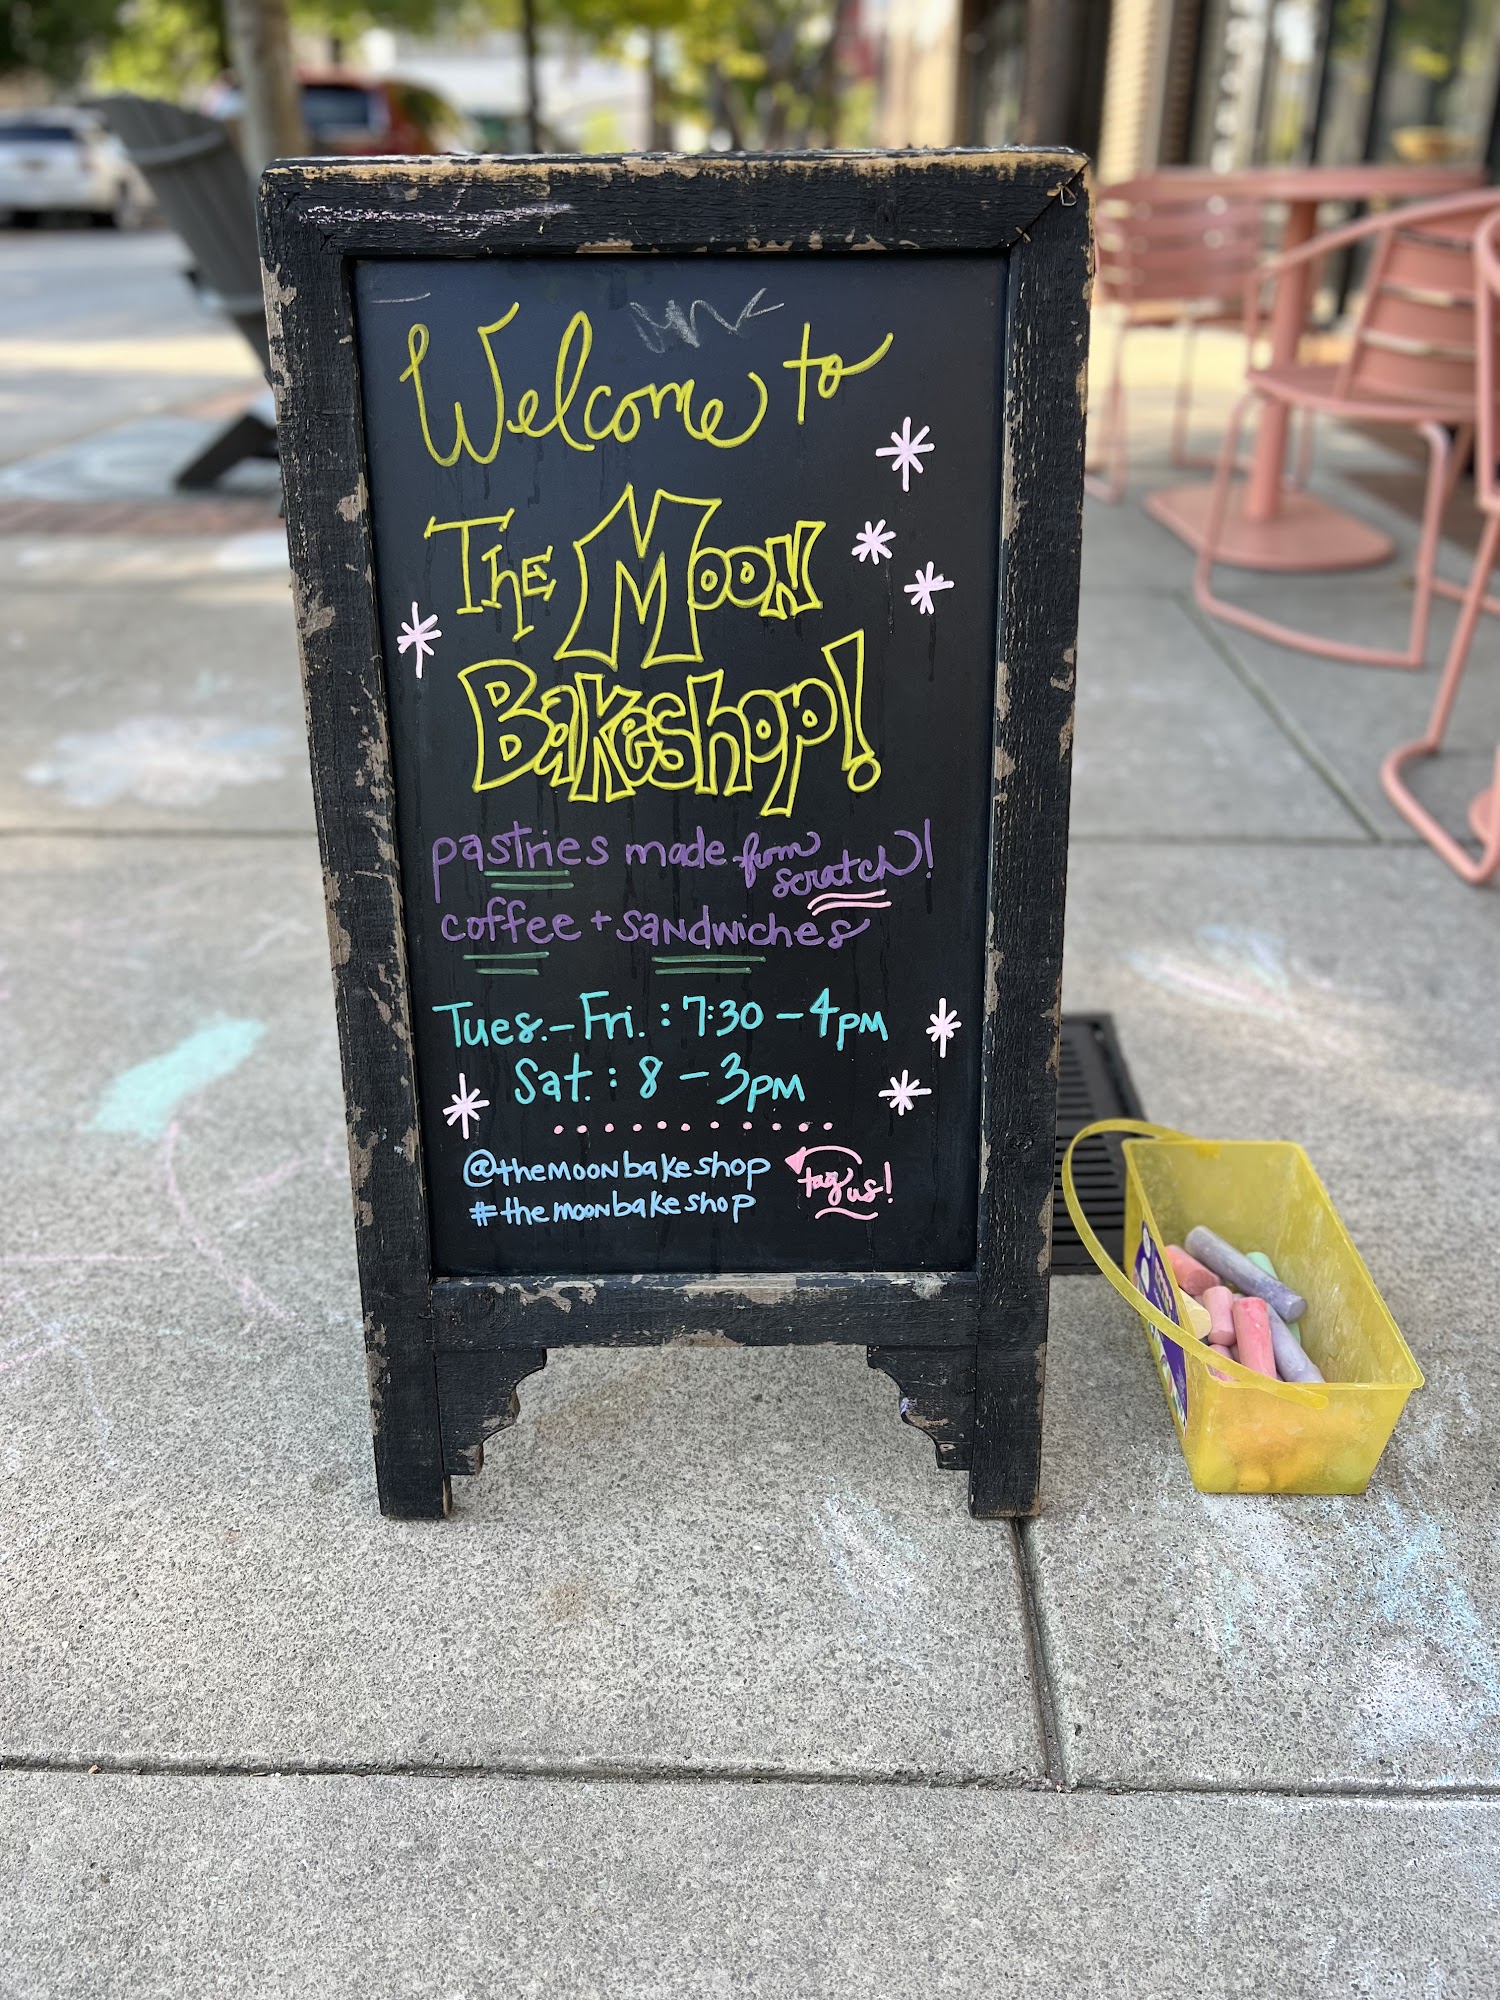 Welcome to
The Moon
Bakeshop!
pastries made from scratch!
coffee + sandwiches
Tues.-Fri.: 7:30 - 4pm
Sat.: 8 - 3pm
@themoonbakeshop
#themoonbakeshop
tag us!